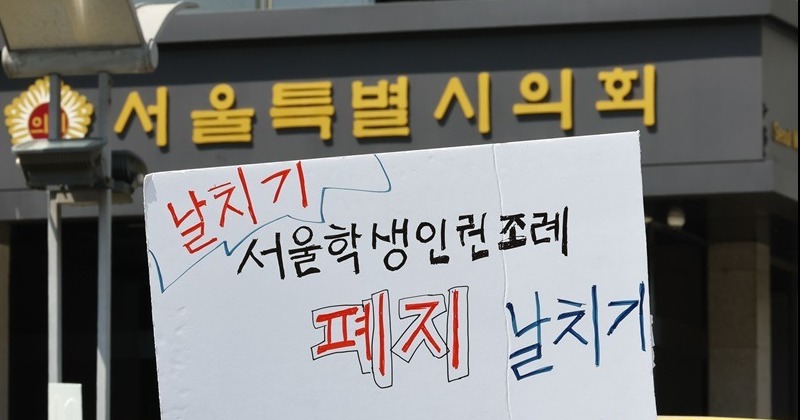 서울특별시의회
날치기
서울학생인권조례
폐지 날치기